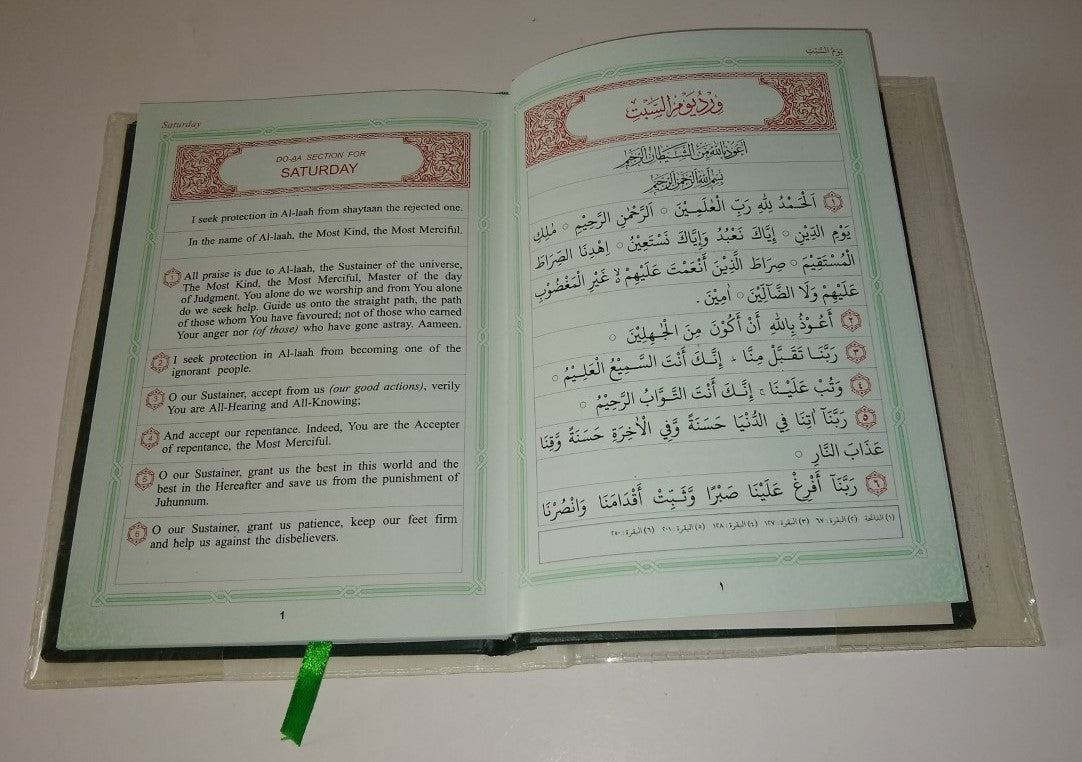 Saturday
DO-AA SECTION FOR
SATURDAY
I seek protection in Al-laah from shaytaan the rejected one.
In the name of Al-laah, the Most Kind, the Most Merciful.
1 All praise is due to Al-laah, the Sustainer of the universe,
The Most Kind, the Most Merciful, Master of the day
of Judgment. You alone do we worship and from You alone
do we seek help. Guide us onto the straight path, the path
of those whom You have favoured; not of those who earned
Your anger nor (of those) who have gone astray. Aameen.
2 I seek protection in Al-laah from becoming one of the
ignorant people.
3 O our Sustainer, accept from us (our good actions), verily
You are All-Hearing and All-Knowing;
4 And accept our repentance. Indeed, You are the Accepter
of repentance, the Most Merciful.
5 O our Sustainer, grant us the best in this world and the
best in the Hereafter and save us from the punishment of
Juhunnum.
6 O our Sustainer, grant us patience, keep our feet firm
and help us against the disbelievers.
1
يَوْمُ السَّبْتِ
وِرْدُ يَوْمِ السَّبْتِ
أَعُوذُ بِاللهِ مِنَ الشَّيْطَانِ الرَّجِيْمِ
بِسْمِ اللهِ الرَّحْمٰنِ الرَّحِيْمِ
١ اَلْحَمْدُ لِلّٰهِ رَبِّ الْعٰلَمِيْنَ ○ اَلرَّحْمٰنِ الرَّحِيْمِ ○ مٰلِكِ
يَوْمِ الدِّيْنِ ○ إِيَّاكَ نَعْبُدُ وَإِيَّاكَ نَسْتَعِيْنُ ○ اِهْدِنَا الصِّرَاطَ
الْمُسْتَقِيْمَ ○ صِرَاطَ الَّذِيْنَ أَنْعَمْتَ عَلَيْهِمْ لا غَيْرِ الْمَغْضُوْبِ
عَلَيْهِمْ وَلَا الضَّآلِّيْنَ ○ اٰمِيْنَ .
٢ أَعُوْذُ بِاللّٰهِ أَنْ أَكُوْنَ مِنَ الْجٰهِلِيْنَ ○
٣ رَبَّنَا تَقَبَّلْ مِنَّا ؕ إِنَّكَ أَنْتَ السَّمِيْعُ الْعَلِيْمُ ○
٤ وَتُبْ عَلَيْنَا ۚ إِنَّكَ أَنْتَ التَّوَّابُ الرَّحِيْمُ ○
٥ رَبَّنَآ اٰتِنَا فِي الدُّنْيَا حَسَنَةً وَّفِي الْاٰخِرَةِ حَسَنَةً وَّقِنَا
عَذَابَ النَّارِ ○
٦ رَبَّنَآ أَفْرِغْ عَلَيْنَا صَبْرًا وَّثَبِّتْ أَقْدَامَنَا وَانْصُرْنَا
(١) الفاتحة (٢) البقرة : ٦٧ (٣) البقرة : ١٢٧ (٤) البقرة : ١٢٨ (٥) البقرة : ٢٠١ (٦) البقرة : ٢٥٠
١